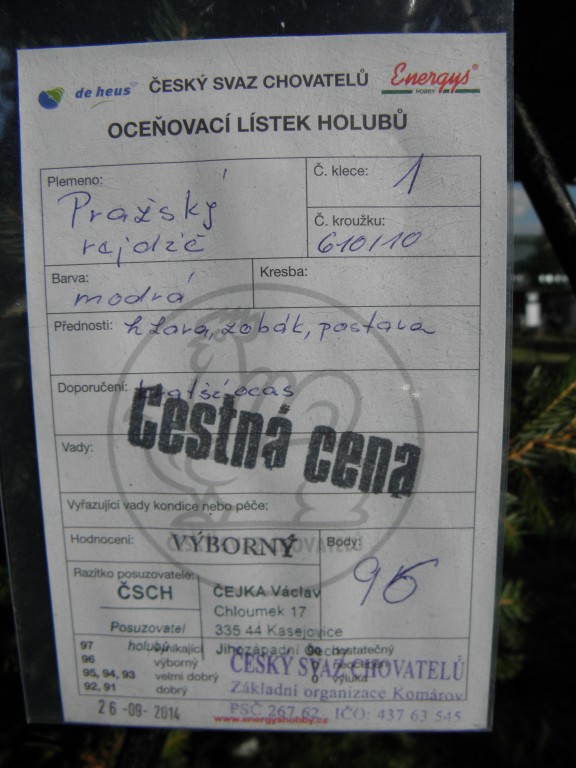 de heus ČESKÝ SVAZ CHOVATELŮ Energys HOBBY
OCEŇOVACÍ LÍSTEK HOLUBŮ
Plemeno:
Pražský
rejdič
Č. klece: 1
Č. kroužku:
610/10
Barva:
modrá
Kresba:
Přednosti: hlava, zobák, postava
Doporučení: kratší ocas
Čestná cena
Vady:
Vyřazující vady kondice nebo péče:
Hodnocení: VÝBORNÝ
Body:
96
Razítko posuzovatele:
ČSCH
Posuzovatel
holubů
ČEJKA Václav
Chloumek 17
335 44 Kasejovice
Jihozápadní Čechy
97 vynikající
96 výborný
95, 94, 93 velmi dobrý
92, 91 dobrý
90 dostatečný
0
0 výluka
ČESKÝ SVAZ CHOVATELŮ
Základní organizace Komárov
PSČ 267 62 IČO: 437 63 545
26 -09- 2014
www.energyshobby.cz